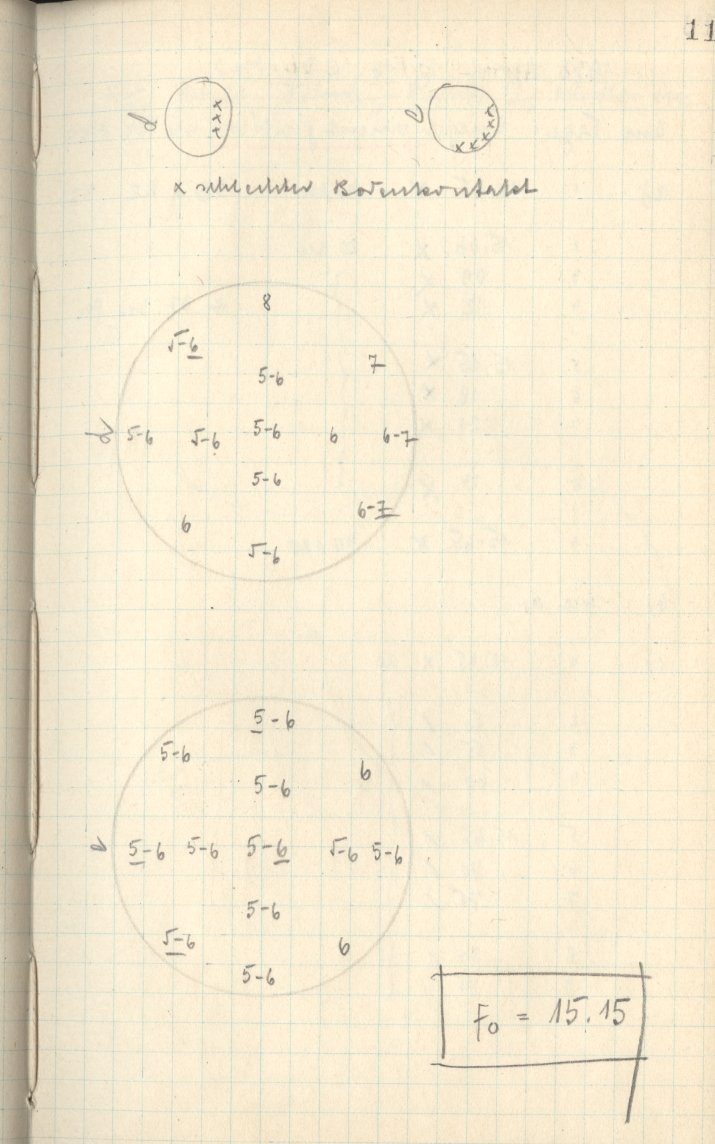 11
d xxx
e xxxxx
x schlechter Bodenkontakt
8
5-6 7
5-6
d 5-6 5-6 5-6 6 6-7
5-6
6 6-7
5-6
5-6
5-6 6
5-6
e 5-6 5-6 5-6 5-6 5-6
5-6
5-6 6
5-6
F₀ = 15.15